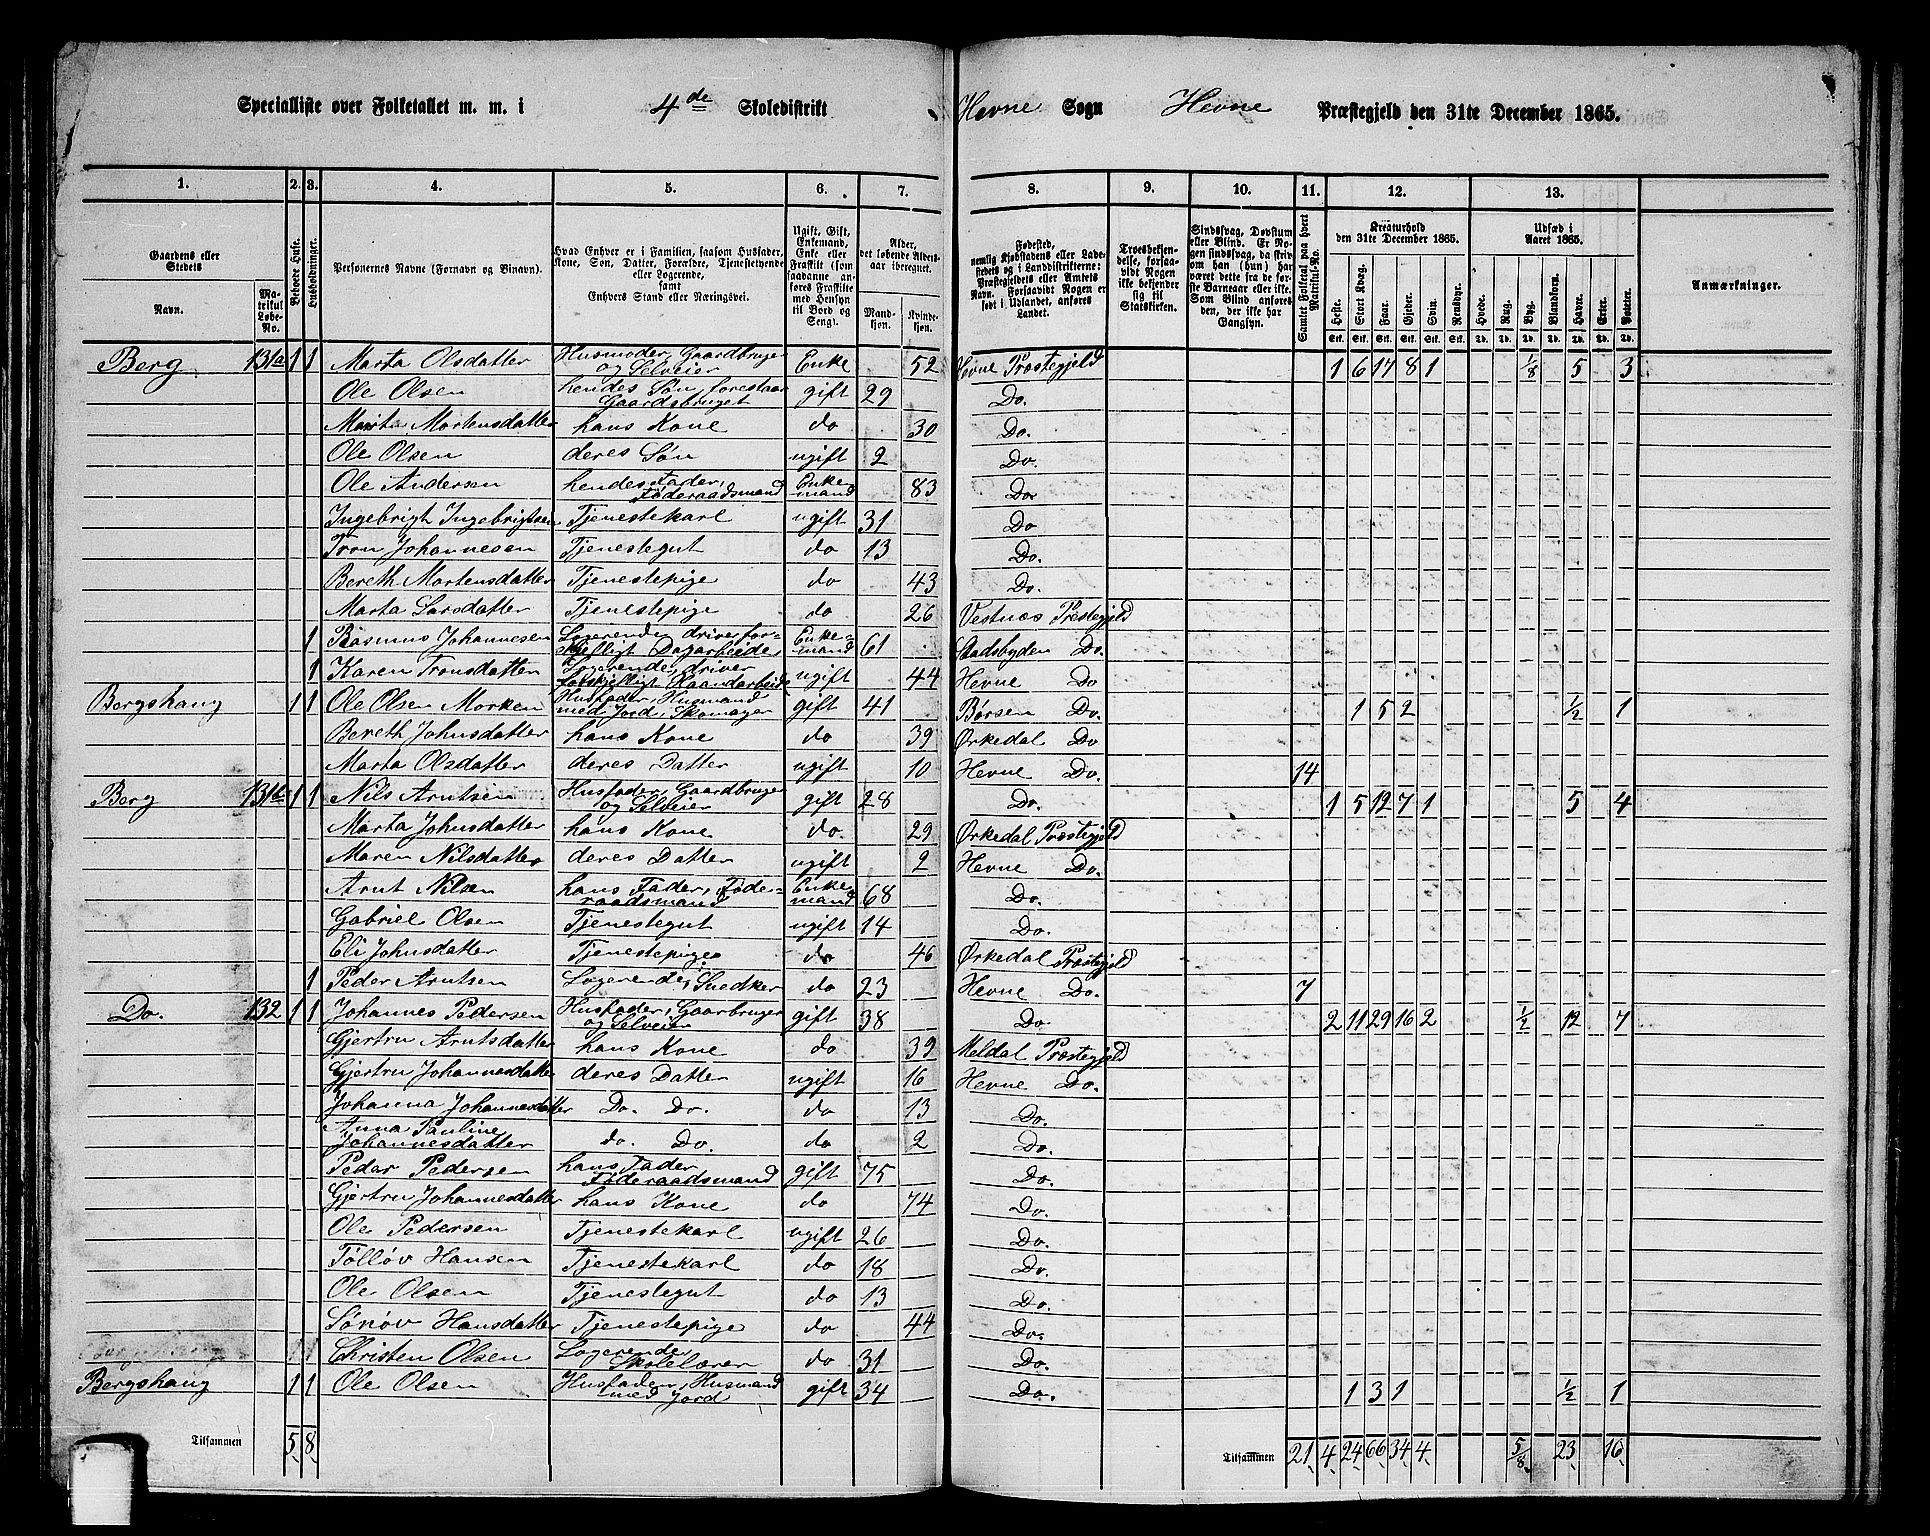 Specialliste over Folketallet m. m. i 4de Skoledistrikt Hevne Sogn Hevne Præstegjeld den 31te December 1865.
1. 2. 3. 4. 5. 6. 7. 8. 9. 10. 11. 12. 13.
Gaardens eller Stedets
Navn.
Matrikul Løbe-No.
Beboede Huse.
Husholdninger.
Personernes Navne (Fornavn og Binavn).
Hvad Enhver er i Familien, saasom Husfader, Kone, Søn, Datter, Forældre, Tjenestetyende eller Logerende, samt Enhvers Stand eller Næringsvei.
Ugift, Gift, Enkemand, Enke eller Fraskilt (som saadanne anføres Fraskilte med Hensyn til Bord og Seng).
Alder, det løbende Aldersaar iberegnet.
Mandkjøn. Kvindekjøn.
Fødested, nemlig Kjøbstadens eller Ladestedets og i Landdistrikterne: Præstegjeldets eller Amtets Navn. Forsaavidt Nogen er født i Udlandet, anføres Landet.
Troesbekjendelse, forsaavidt Nogen ikke bekjender sig til Statskirken.
Sindssvag, Døvstum eller Blind. Er Nogen sindssvag, da skrives om han (hun) har været dette fra de første Barneaar eller ikke. Som Blind anføres den, der ikke har Gangsyn.
Samlet Folketal paa hvert Matrikul-No.
Kreaturhold den 31te December 1865.
Heste. Stort Kvæg. Faar. Gjeder. Svin. Rensdyr.
Udsæd i Aaret 1865.
Hvede. Rug. Byg. Blandkorn. Havre. Erter. Poteter.
Anmærkninger.
Stk. Stk. Stk. Stk. Stk. Stk. Td. Td. Td. Td. Td. Td. Td.
Berg 131a 1 1 Marta Olsdatter Husmoder, Gaardbruger og Selveier Enke 52 Hevne Præstegjeld 1 6 17 8 1 1/8 5 3
Ole Olsen hendes Søn, forestaar Gaardsbruget gift 29 Do.
Marta Mortensdatter hans Kone do 30 Do.
Ole Olsen deres Søn ugift 2 Do.
Ole Andersen hendes Fader, Føderaadsmand Enkemand 83 Do.
Ingebrigt Ingebrigtsen Tjenestekarl ugift 31 Do
Tron Johannesen Tjenestegut do 13 Do.
Bereth Mortensdatter Tjenestepige do 43 Do.
Marta Larsdatter Tjenestepige do 26 Vestnæs Præstegjeld
1 Rasmus Johannesen Logerende, driver forskjelligt Dagarbeide Enkemand 61 Stadsbyden Do.
1 Karen Tronsdatter Logerende, driver forskjelligt Haandarbeide ugift 44 Hevne Do
Bergshaug 1 1 Ole Olsen Morken Husfader, Husmand med Jord, Skomager gift 41 Børsen Do. 1 5 2 1/2 1
Bereth Johnsdatter hans Kone do 39 Ørkedal Do
Marta Olsdatter deres Datter ugift 10 Hevne Do. 14
Berg 131b 1 1 Nils Arntsen Husfader, Gaardbruger og Selveier gift 28 Do. 1 5 12 7 1 5 4
Marta Johnsdatter hans Kone do. 29 Ørkedal Præstegjeld
Maren Nilsdatter deres Datter ugift 2 Hevne Do.
Arnt Nilsen hans Fader, Føderaadsmand Enkemand 68 Do.
Gabriel Olsen Tjenestegut ugift 14 Do.
Eli Johnsdatter Tjenestepige do 46 Ørkedal Præstegjeld
1 Peder Arntsen Logerende, Snedker do 23 Hevne Do. 7
Do. 132 1 1 Johannes Pedersen Husfader, Gaarbruger og Selveier gift 38 Do. 2 11 29 16 2 1/2 12 7
Gjertru Arntsdatter hans Kone do 39 Meldal Præstegjeld
Gjertru Johannesdatter deres Datter ugift 16 Hevne Do.
Johanna Johannesdatter Do. Do. do 13 Do.
Anna Pauline Johannesdatter do. Do. do 2 Do.
Peder Pedersen hans Fader Føderaadsmand gift 75 Do.
Gjertru Johannesdatter hans Kone do 74 Do.
Ole Pedersen Tjenestekarl ugift 26 Do.
Tølløv Hansen Tjenestekarl do 18 Do.
Ole Olsen Tjenestegut do 13 Do.
Sønøv Hansdatter Tjenestepige do 44 Do.
1 Christen Olsen Logerende Skolelærer do 31 Do.
Bergshaug 1 1 Ole Olsen Husfader, Husmand med Jord gift 34 Do. 1 3 1 1/2 1
Tilsammen 5 8 Tilsammen 21 4 24 66 34 4 5/8 23 16